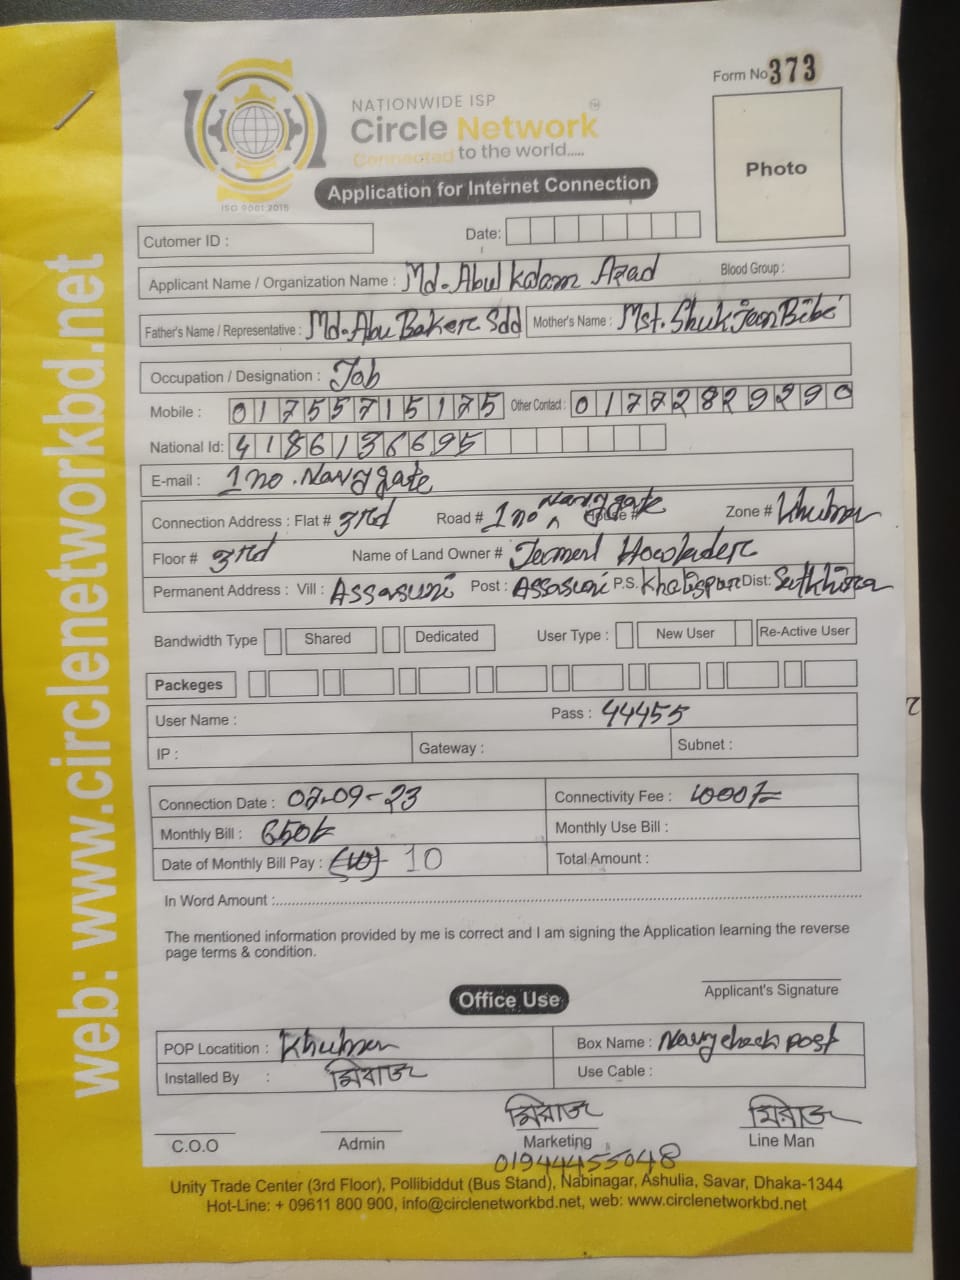 Form No 373
NATIONWIDE ISP
Circle Network
Connected to the world.....
ISO 9001:2015
Application for Internet Connection
Photo
Cutomer ID :
Date:
Applicant Name / Organization Name : Md. Abul Kalam Azad Blood Group :
Father's Name / Representative : Md. Abu Bakere Sdd Mother's Name : Mst. Shuk Jan Bibi
Occupation / Designation : Job
Mobile : 01755715175 Other Contact : 01772829290
National Id: 4186136695
E-mail : 1 no. Navy gate
Connection Address : Flat # 3rd Road # 1 no Navy gate House # Zone # Khulna
Floor # 3rd Name of Land Owner # Howladere
Permanent Address : Vill : Assasuni Post : Assasuni P.S. Khalispur Dist: Satkhira
Bandwidth Type Shared Dedicated User Type : New User Re-Active User
Packeges
User Name : Pass : 44455
IP : Gateway : Subnet :
Connection Date : 07-09-23 Connectivity Fee : 1000/=
Monthly Bill : 650/= Monthly Use Bill :
Date of Monthly Bill Pay : (10) 10 Total Amount :
In Word Amount :
The mentioned information provided by me is correct and I am signing the Application learning the reverse
page terms & condition.
Applicant's Signature
Office Use
POP Locatition : Khulna Box Name : Navy check post
Installed By : মিরাজ Use Cable :
মিরাজ মিরাজ
C.O.O Admin Marketing Line Man
01944455048
Unity Trade Center (3rd Floor), Pollibiddut (Bus Stand), Nabinagar, Ashulia, Savar, Dhaka-1344
Hot-Line: + 09611 800 900, info@circlenetworkbd.net, web: www.circlenetworkbd.net
web: www.circlenetworkbd.net